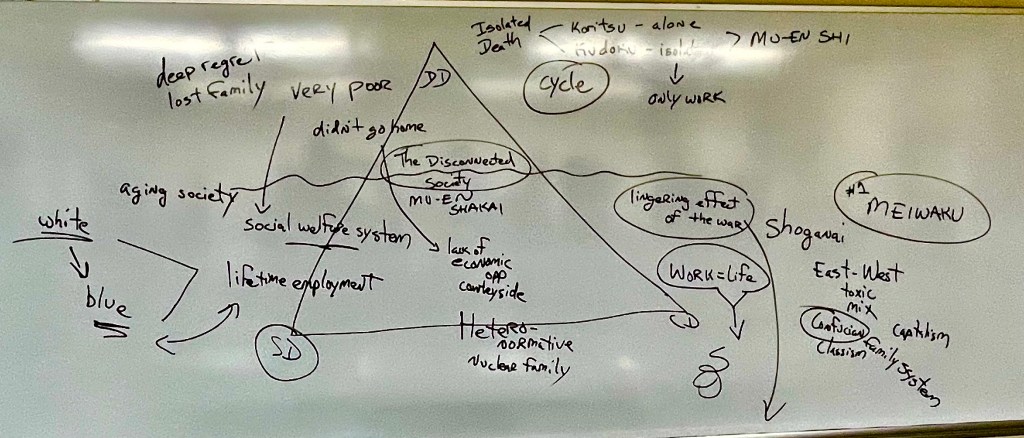 Isolated
Death
Koritsu - alone
Kudoku - isol
MU-EN SHI
cycle
ONLY WORK
deep regret
lost family
very poor
DD
didn't go home
The Disconnected
Society
MU-EN
SHAKAI
aging society
lingering effect
of the war
#1
MEIWAKU
white
blue
social welfare system
Shoganai
lack of
economic
opp
countryside
lifetime employment
WORK = Life
East-West
toxic
mix
Confucian
Capitalism
Classism
family system
SD
CD
Hetero-
normative
Nuclear family